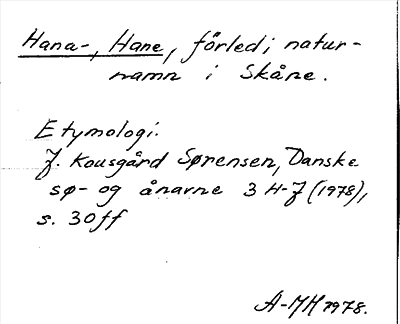 Hana-, Hane, förled i natur-
namn i Skåne.
Etymologi:
J. Kousgård Sørensen, Danske
sø- og ånavne 3 H-J (1978),
s. 30ff
A-MH 1978.